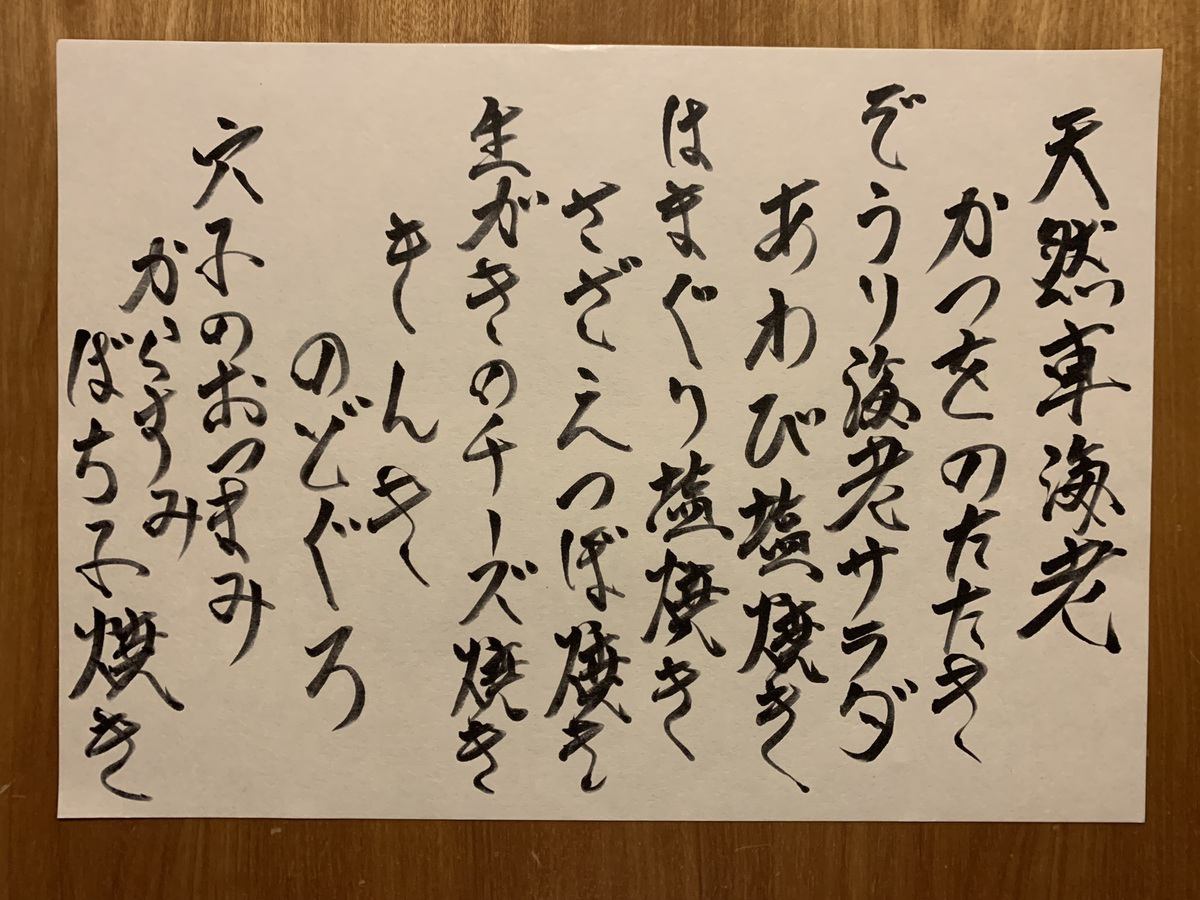 天然車海老
かつをのたたき
ぞうり海老サラダ
あわび塩焼き
はまぐり塩焼き
さざえつぼ焼き
生がきのチーズ焼き
きんき
のどぐろ
穴子のおつまみ
からすみ
ばちこ焼き